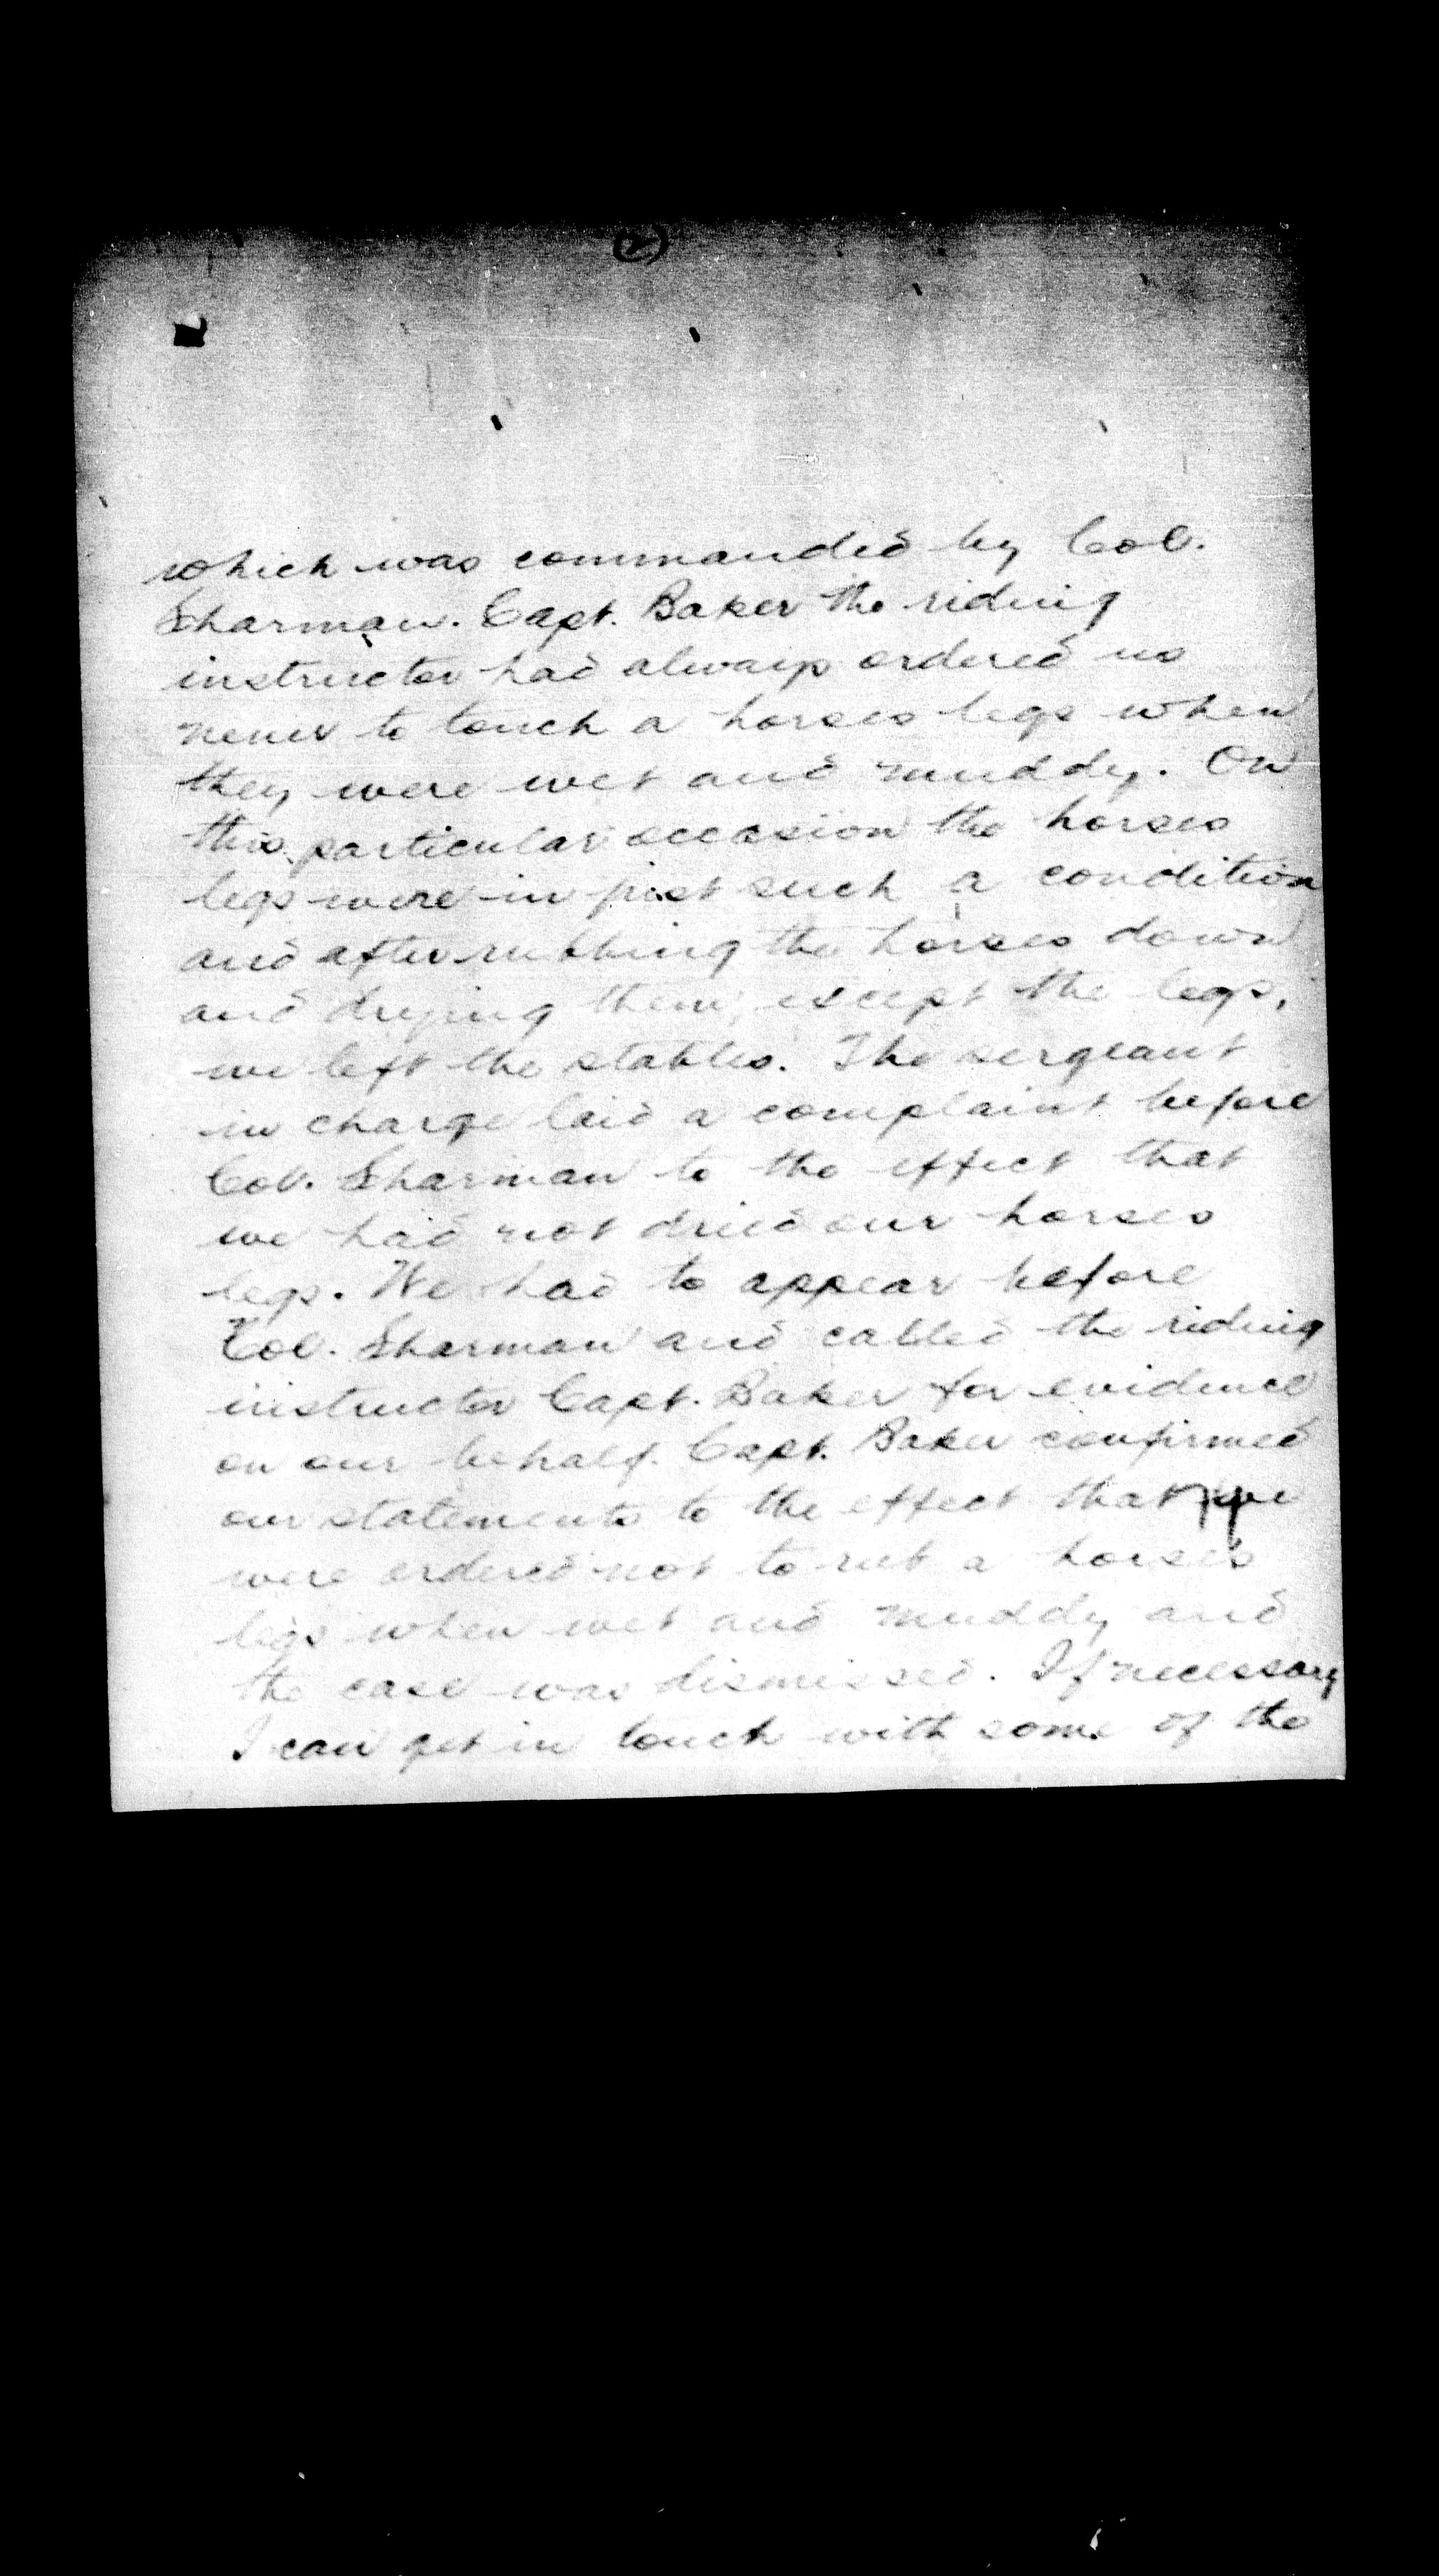 (2)
which was commanded by Col.
Sharman. Capt. Baker the riding
instructor had always ordered us
never to touch a horses legs when
they were wet and muddy. On
this particular occasion the horses
legs were in just such a condition
and after rubbing the horses down
and drying them, except the legs,
we left the stables. The sergeant
in charge laid a complaint before
Col. Sharman to the effect that
we had not dried our horses
legs. We had to appear before
Col. Sharman and called the riding
instructor Capt. Baker for evidence
on our behalf. Capt. Baker confirmed
our statements to the effect that we
were ordered not to rub a horses
legs when wet and muddy and
the case was dismissed. If necessary
I can get in touch with some of the